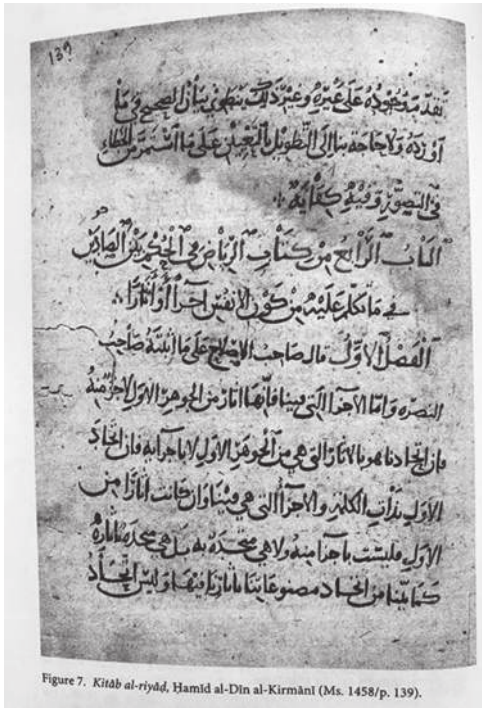 139
تقدم وجوده على غيره وغير ذلك ينطوي بيان الصحيح في ما
اورده ولا حاجة بنا الى التطويل بالتعيين على ما استمر من الخطاء
في التصور وفيه كفاية
الباب الرابع من كتاب الرياض في الحكم بين الصادين
في ما تكلم عليه من كون الانفس اجزآ أو اثارا
الفصل الاول قال صاحب الاصلاح على ما اثبته صاحب
النصره واما الاجزآ التي فينا فانها اثار من الجوهر الاول لا جز منه
فان اتحادنا هو بالاثار التي هي من الجوهر الاول لا باجزآيه فان اتحاد
الاول بذات الكلمة والاجزآ التي هي فينا وان كانت اثارا من
الاول فليست باجزآ منه ولا هي متحدة به بل هي متحدة باثاره
كما بينا من اتحاد مصنوعاتنا باثارنا فيها وليس اتحاد
Figure 7. Kitāb al-riyāḍ, Ḥamīd al-Dīn al-Kirmānī (Ms. 1458/p. 139).